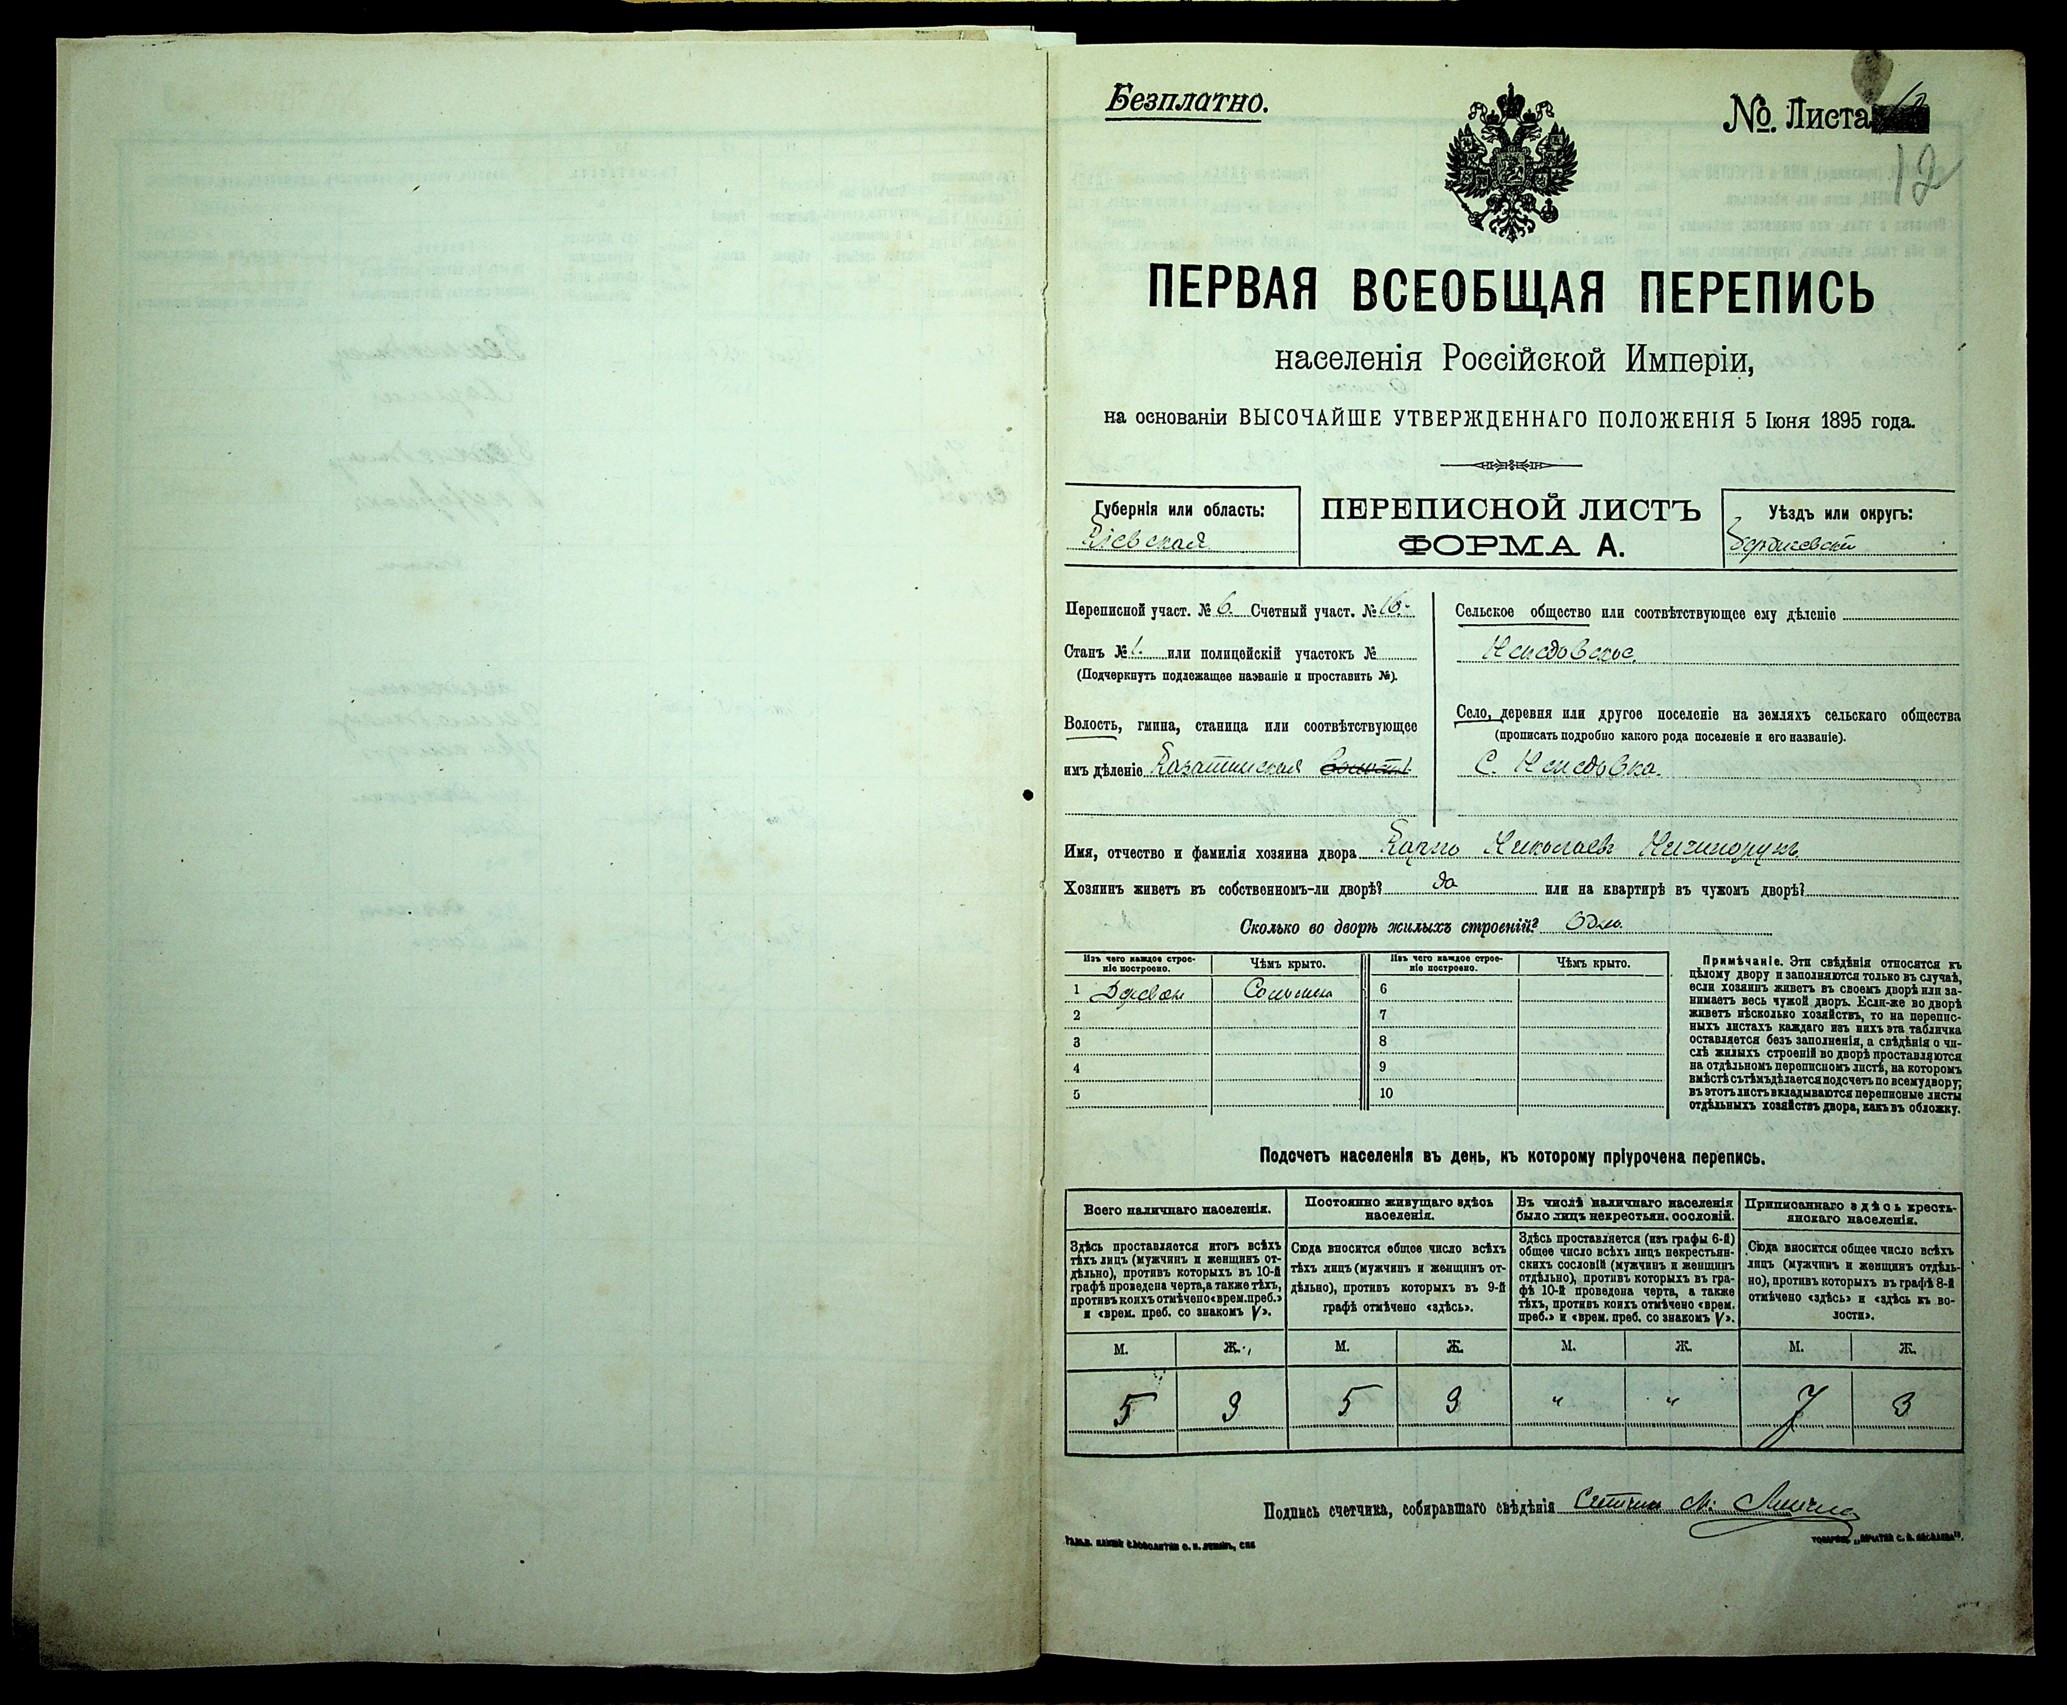 Безплатно.
№ Листа
12
ПЕРВАЯ ВСЕОБЩАЯ ПЕРЕПИСЬ
населенія Россійской Имперіи,
на основаніи ВЫСОЧАЙШЕ УТВЕРЖДЕННАГО ПОЛОЖЕНІЯ 5 Іюня 1895 года.
Губернія или область:
Кіевская
ПЕРЕПИСНОЙ ЛИСТЪ
ФОРМА А.
Уѣздъ или округъ:
Бердичевскій
Переписной участ. № 6. Счетный участ. № 16.
Станъ № 1. или полицейскій участокъ №
(Подчеркнуть подлежащее названіе и проставить №).
Волость, гмина, станица или соотвѣтствующее
имъ дѣленіе Казатинская
Сельское общество или соотвѣтствующее ему дѣленіе
Село, деревня или другое поселеніе на земляхъ сельскаго общества
(прописать подробно какого рода поселеніе и его названіе).
С.
Имя, отчество и фамилія хозяина двора Карпо Николаевъ Ничипорукъ
Хозяинъ живетъ въ собственномъ-ли дворѣ? да или на квартирѣ въ чужомъ дворѣ?
Сколько во дворѣ жилыхъ строеній? Одно.
Изъ чего каждое строе-
ніе построено.
Чѣмъ крыто.
Изъ чего каждое строе-
ніе построено.
Чѣмъ крыто.
1 Соломою 6
2 7
3 8
4 9
5 10
Примѣчаніе. Эти свѣдѣнія относятся къ
цѣлому двору и заполняются только въ случаѣ,
если хозяинъ живетъ въ своемъ дворѣ или за-
нимаетъ весь чужой дворъ. Если-же во дворѣ
живетъ нѣсколько хозяйствъ, то на перепис-
ныхъ листахъ каждаго изъ нихъ эта табличка
оставляется безъ заполненія, а свѣдѣнія о чи-
слѣ жилыхъ строеній во дворѣ проставляются
на отдѣльномъ переписномъ листѣ, на которомъ
вмѣстѣ съ тѣмъ дѣлается подсчетъ по всему двору;
въ этотъ листъ вкладываются переписные листы
отдѣльныхъ хозяйствъ двора, какъ въ обложку.
Подсчетъ населенія въ день, къ которому пріурочена перепись.
Всего наличнаго населенія.
Здѣсь проставляется итогъ всѣхъ
тѣхъ лицъ (мужчинъ и женщинъ от-
дѣльно), противъ которыхъ въ 10-й
графѣ проведена черта, а также тѣхъ,
противъ коихъ отмѣчено «врем. преб.»
и «врем. преб. со знакомъ V».
Постоянно живущаго здѣсь
населенія.
Сюда вносится общее число всѣхъ
тѣхъ лицъ (мужчинъ и женщинъ от-
дѣльно), противъ которыхъ въ 9-й
графѣ отмѣчено «здѣсь».
Въ числѣ наличнаго населенія
было лицъ некрестьян. сословій.
Здѣсь проставляется (изъ графы 6-й)
общее число всѣхъ лицъ некрестьян-
скихъ сословій (мужчинъ и женщинъ
отдѣльно), противъ которыхъ въ гра-
фѣ 10-й проведена черта, а также
тѣхъ, противъ коихъ отмѣчено «врем.
преб.» и «врем. преб. со знакомъ V».
Приписаннаго здѣсь кресть-
янскаго населенія.
Сюда вносится общее число всѣхъ
лицъ (мужчинъ и женщинъ отдѣль-
но), противъ которыхъ въ графѣ 8-й
отмѣчено «здѣсь» и «здѣсь къ во-
лости».
М. Ж. М. Ж. М. Ж. М. Ж.
5 3 5 3 " " 7 3
Подпись счетчика, собиравшаго свѣдѣнія